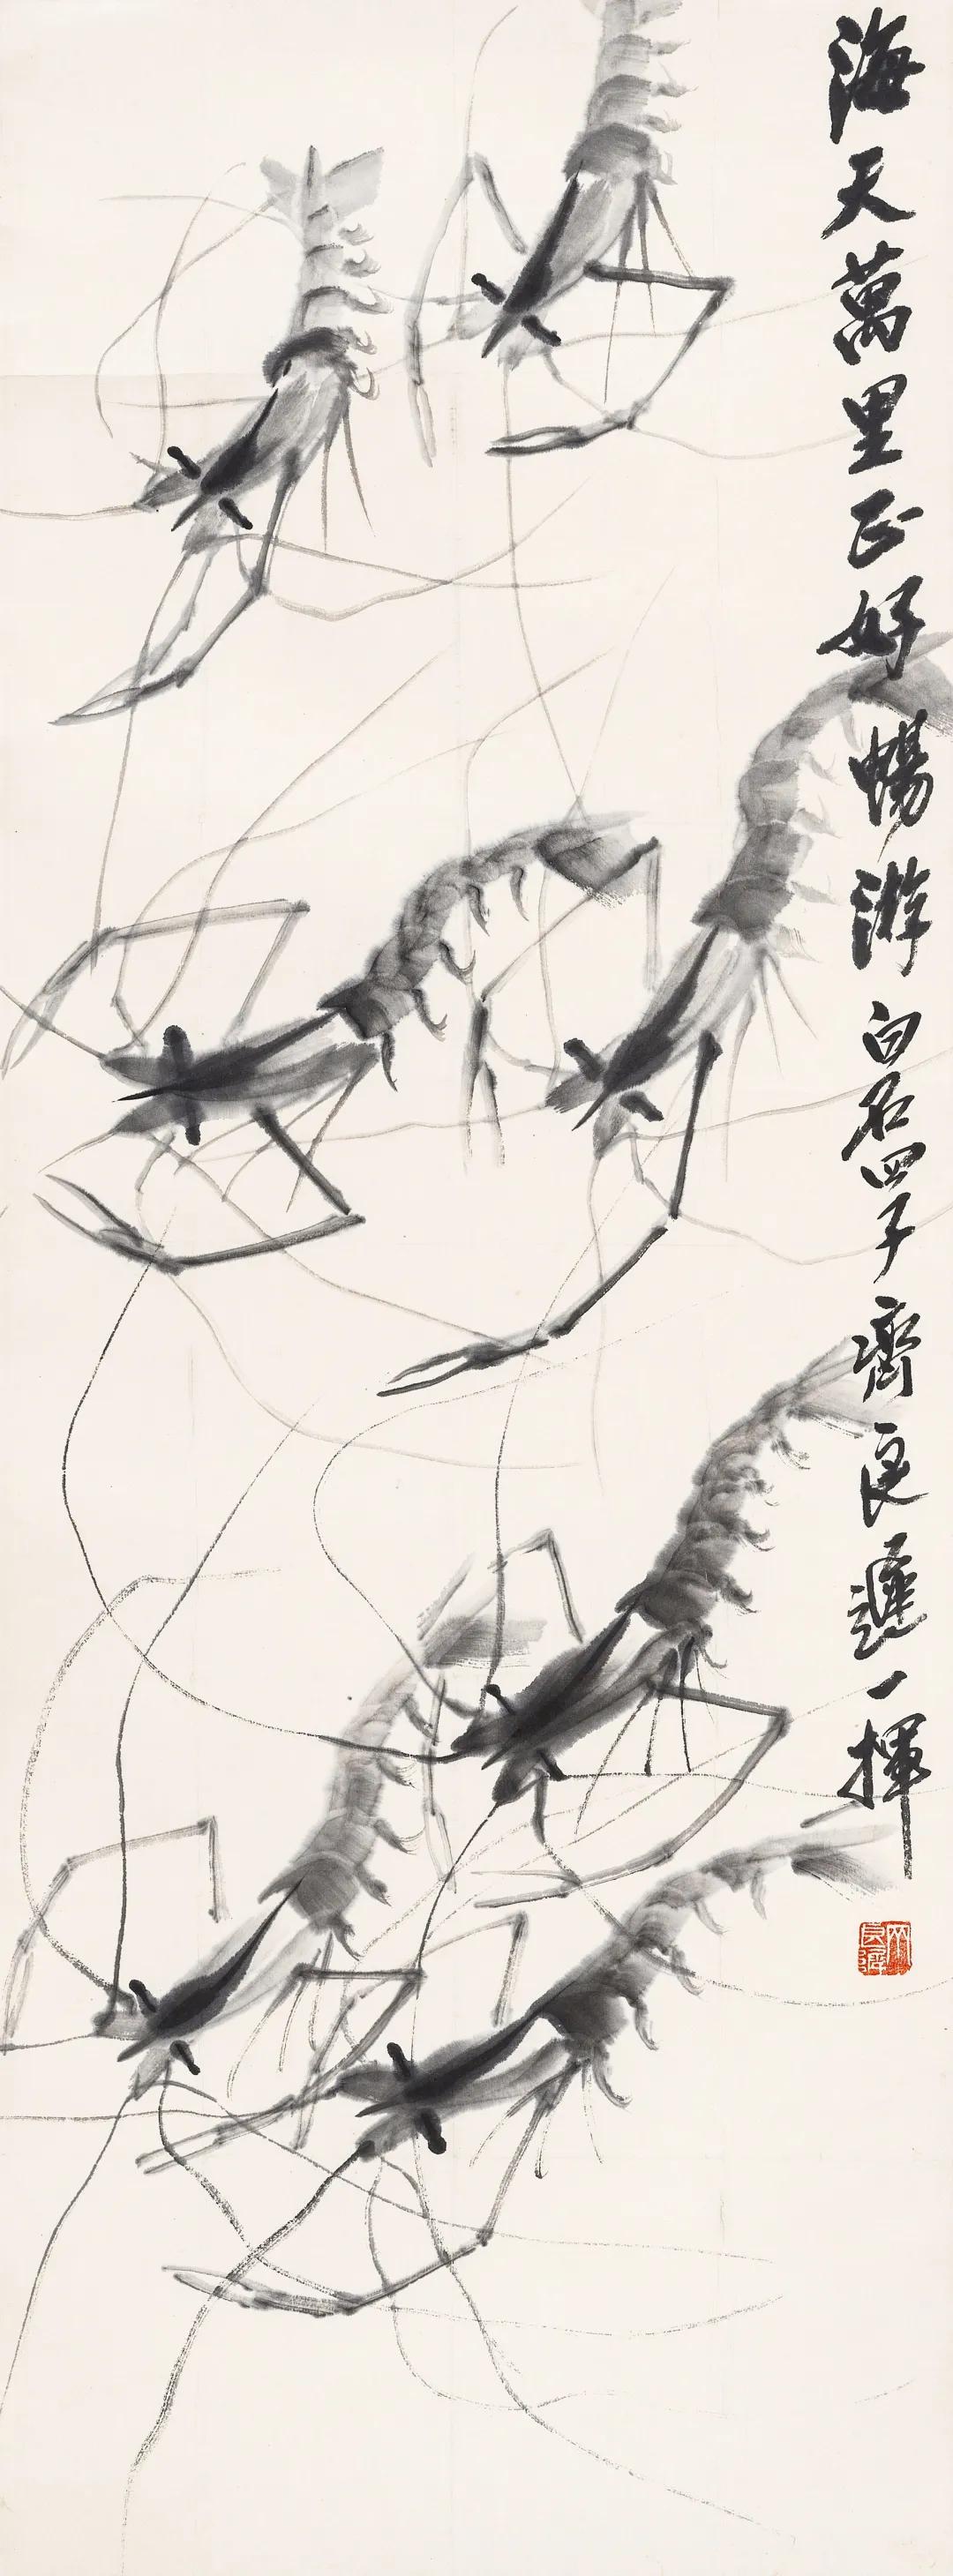 海天萬里正好暢游白石四子齊良遲一揮
齊良遲